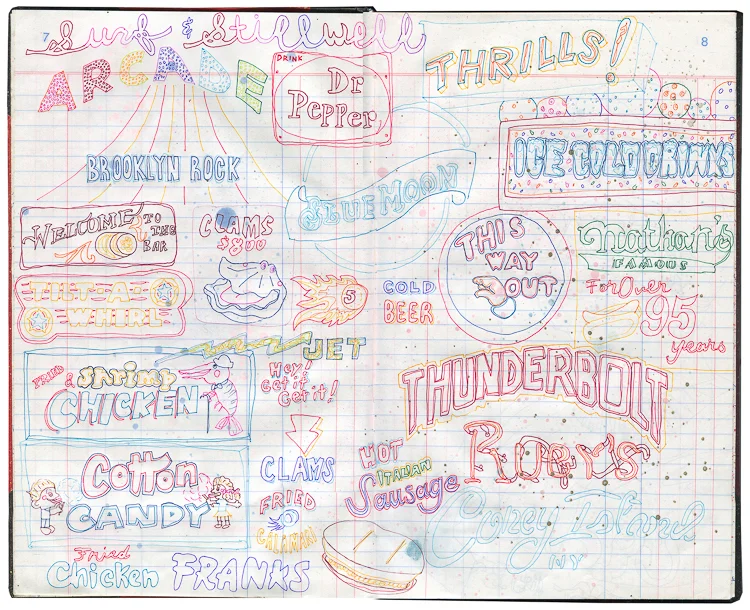 7
Surf & Stillwell
ARCADE
BROOKLYN ROCK
DRINK
Dr
Pepper
WELCOME TO
THE
BAR
CLAMS
$8.00
TILT-A-
WHIRL
5
JET
FRIED
&
Shrimp
CHICKEN
Hey!
Get it
Get it!
Cotton
CANDY
CLAMS
FRIED
CALAMARI
Fried
Chicken
FRANKS
8
THRILLS!
ICE COLD DRINKS
BLUE MOON
THIS
WAY
OUT
nathan's
FAMOUS
For Over
95
years
COLD
BEER
THUNDERBOLT
HOT
ITALIAN
Sausage
Coney Island
NY